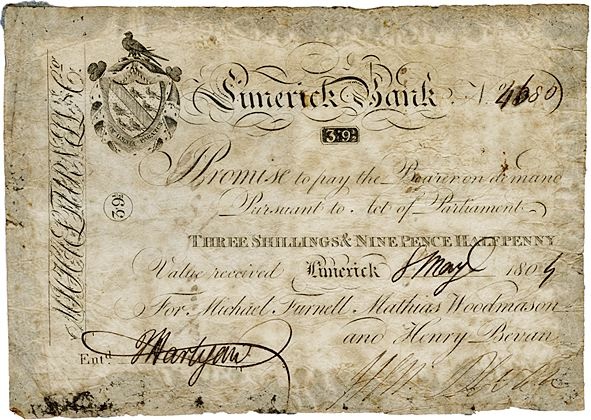 Limerick Bank N. 4680
3:9½
I Promise to pay the Bearer on demand
Pursuant to Act of Parliament
THREE SHILLINGS & NINE PENCE HALFPENNY
Value received Limerick 8 May 1804
For Michael Furnell Mathias Woodmason
and Henry Bevan
Entd.
39½